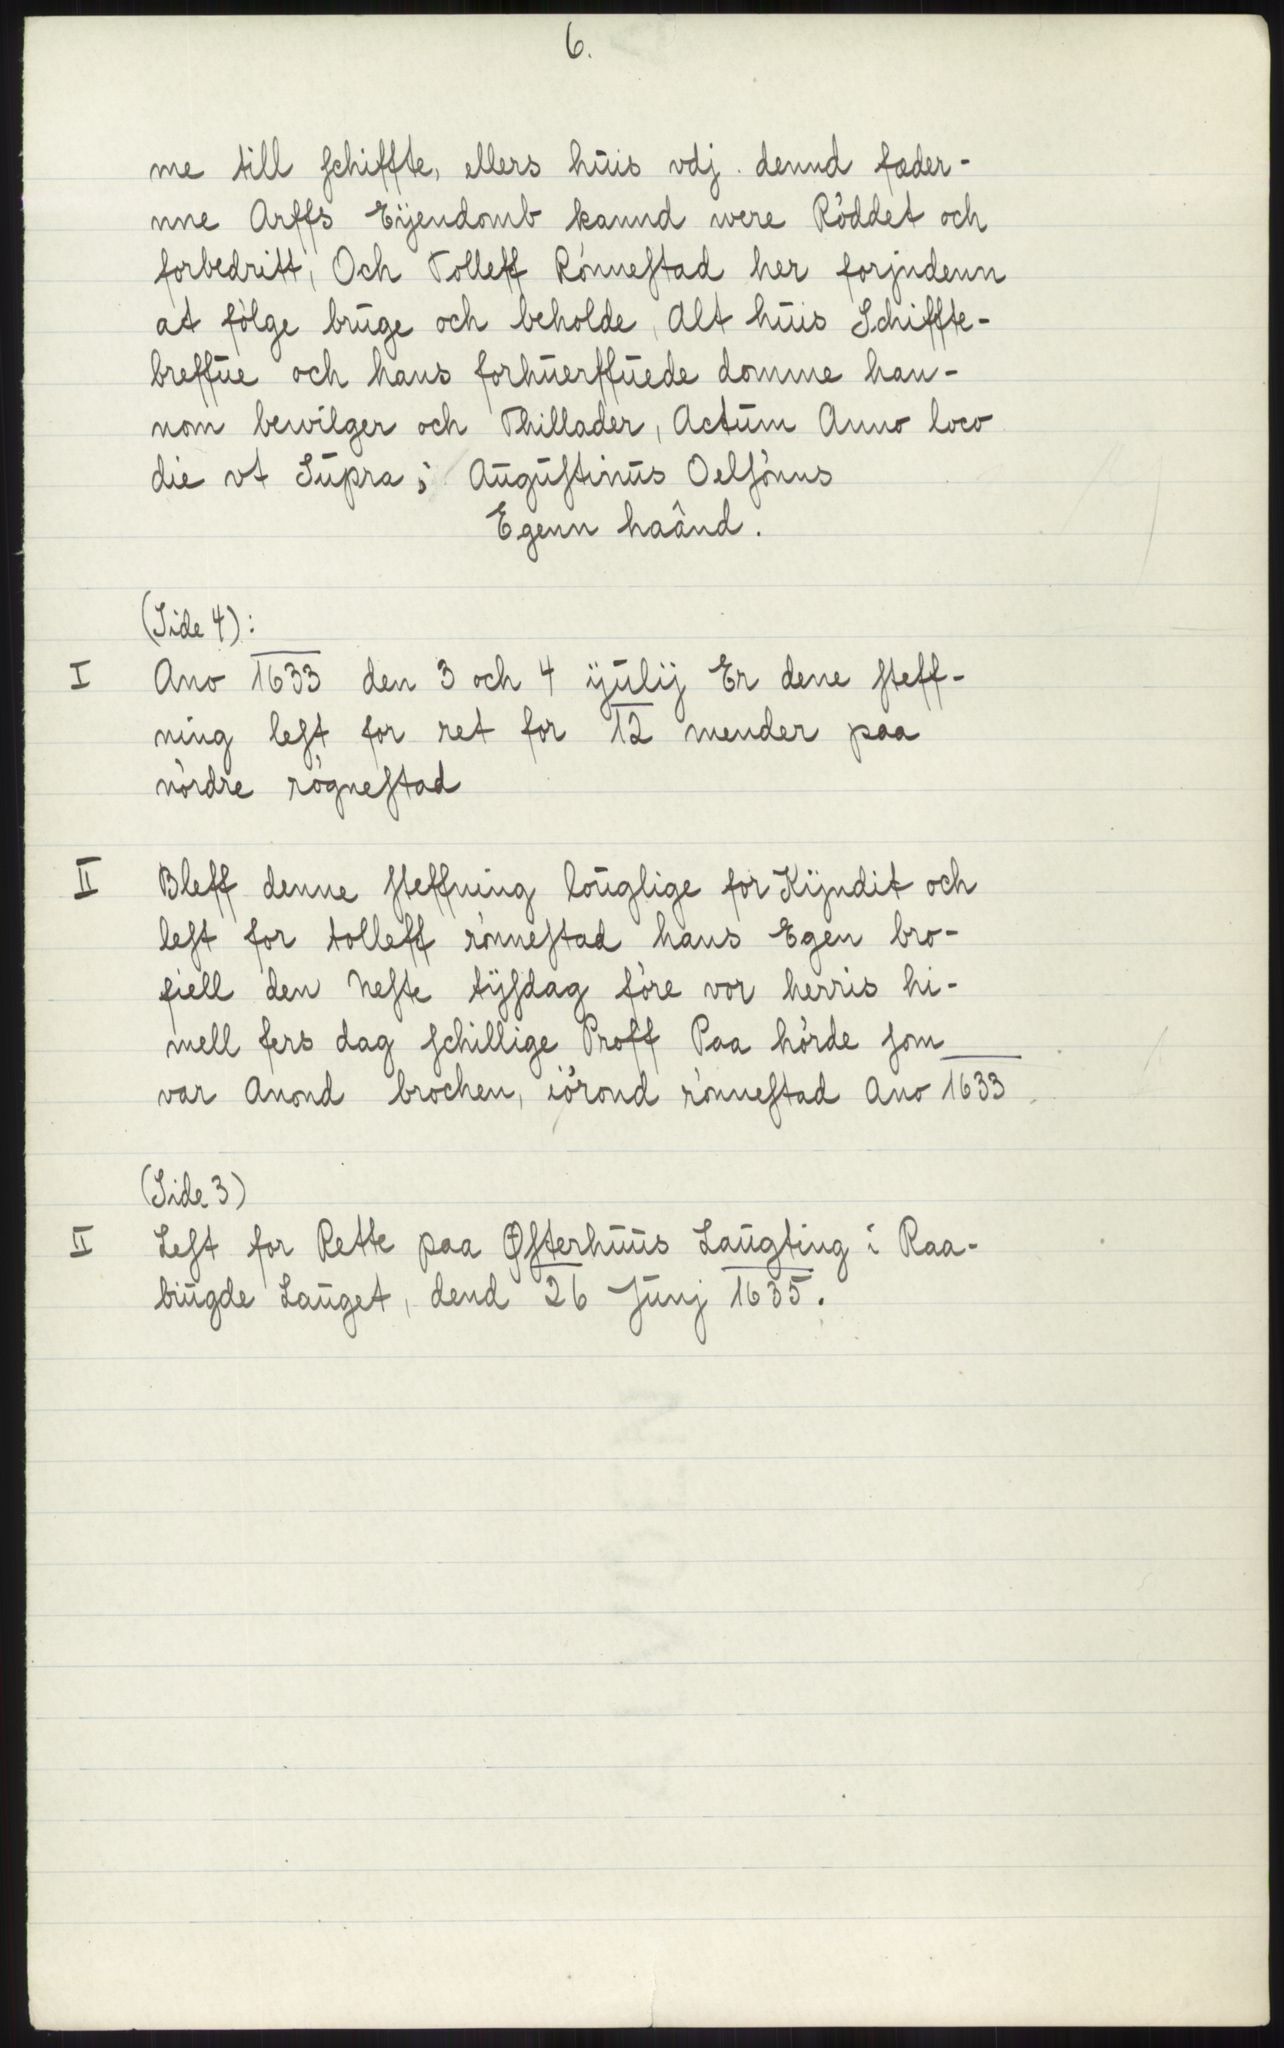 6.
me till schiffte, ellers huis vdj dennd fæder-
nne Arffs Eÿendomb kannd were Röddet och
forbedritt, Och Tolleff Rönnestad her forjndenn
at fölge bruge och beholde, Alt huis Schiffte-
breffue och hans forhuerffuede domme han-
nom bewilger och Thillader, Actum Anno loco
die vt Supra; Augustinus Oelsönns
Egenn haând.
(Side 4):
I Ano 1633 den 3 och 4 ÿulij Er dene steff-
ning lest for ret for 12 mender paa
nördre rögnestad
II Bleff denne steffning louglige for Kÿndit och
lest for tolleff rönnestad hans Egen bro-
fiell den Neste tÿsdag före vor herris hi-
mell fers dag schillige Proff Paa hörde som
var Anond brochen, iörond rönnestad Ano 1633
(Side 3)
II Lest for Rette paa Østerhuus Laugting i Raa-
biugde Lauget, dend 26 Junj 1635.